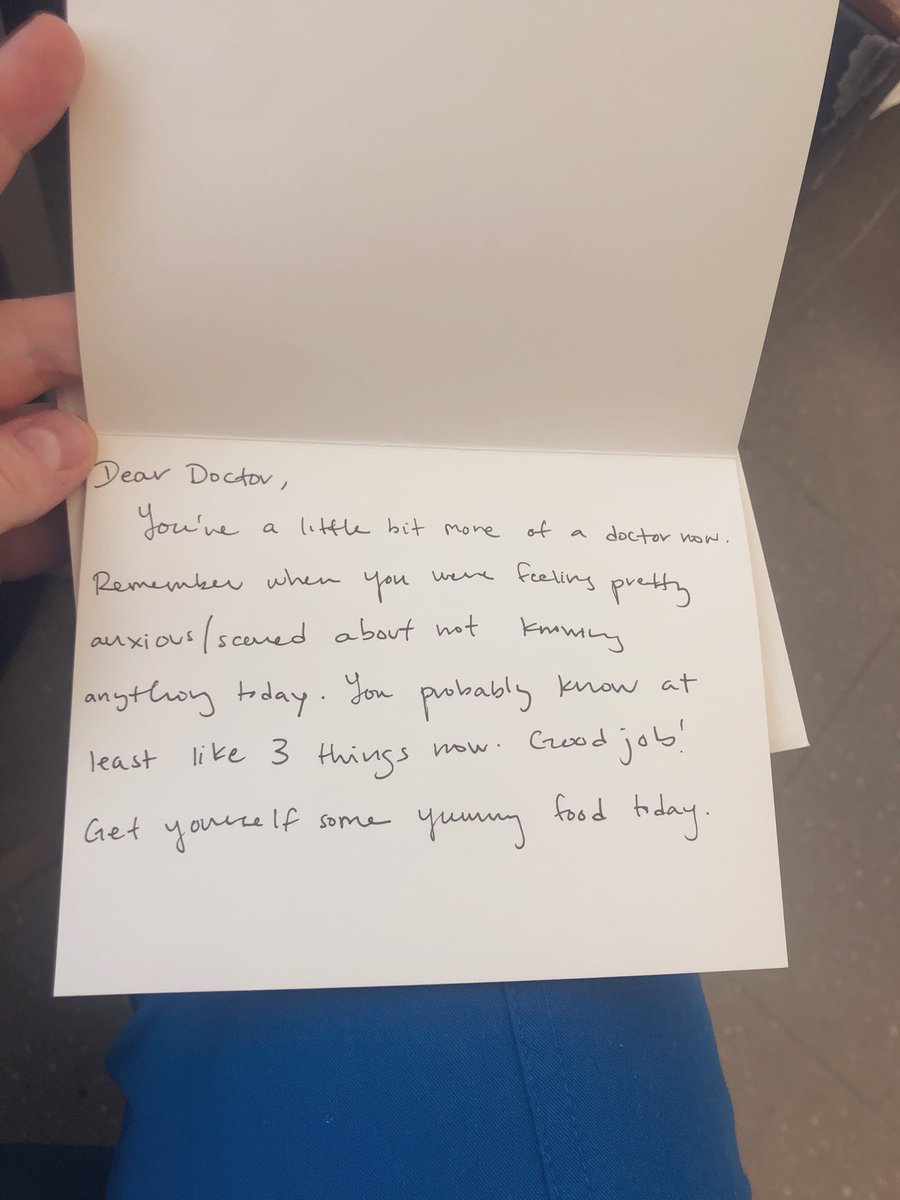 Dear Doctor,
You've a little bit more of a doctor now.
Remember when you were feeling pretty
anxious/scared about not knowing
anything today. You probably know at
least like 3 things now. Good job!
Get yourself some yummy food today.